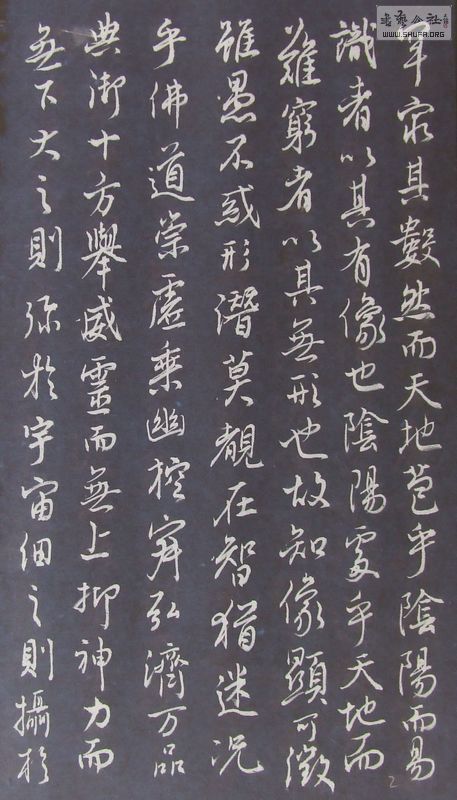 罕窮其數然而天地苞乎陰陽而易
識者以其有像也陰陽處乎天地而
難窮者以其無形也故知像顯可徵
雖愚不惑形潛莫覩在智猶迷况
乎佛道崇虛乘幽控寂弘濟万品
典御十方舉威靈而無上抑神力而
無下大之則弥於宇宙細之則攝於
書藝公社
WWW.SHUFA.ORG
2